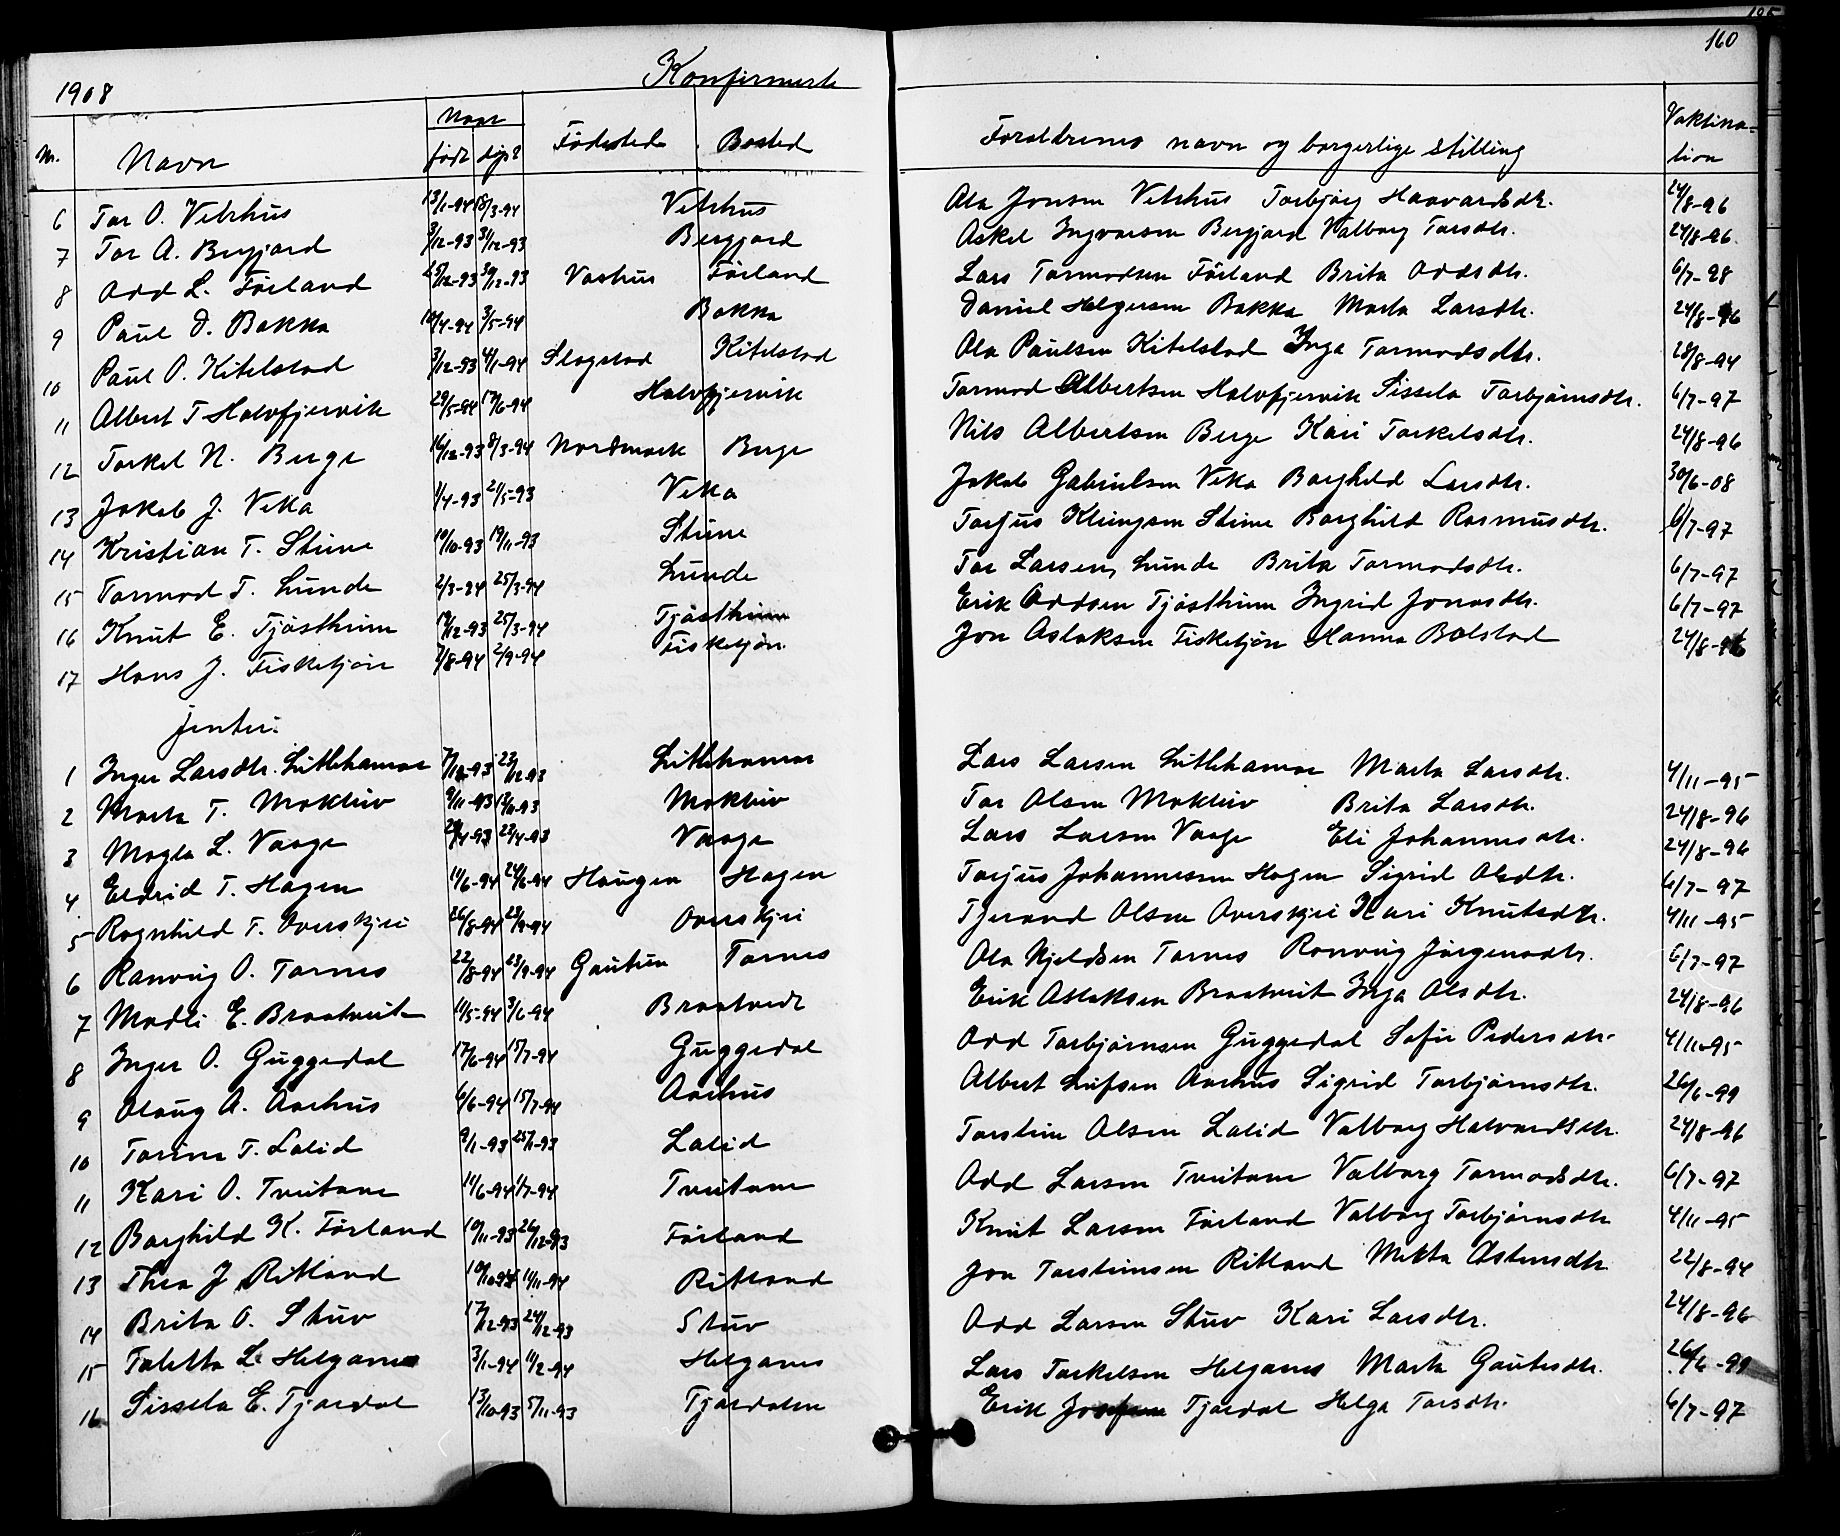 160
1908 Konfirmerte
Nr. Navn Naar født døpt Fødested Bosted Foraldrenes navn og borgerlige stilling Vaktina-tion
6 Tor O. Vetrhus 13/1-94 18/3-94 Vetrhus Ola Jonsen Vetrhus Torbjørg Haavardsdtr. 24/8-96
7 Tor A. Bergjord 3/12-93 31/12-93 Bergjord Askel Ingvarsen Bergjord Valborg Torsdtr. 24/8-96
8 Odd L. Førland 25/12-93 30/12-93 Vashus Førland Lars Tormodsen Førland Brita Oddsdtr. 6/7-98
9 Paul D. Bakka 10/4-94 3/5-94 Bakka Daniel Helgesen Bakka Marta Larsdtr. 24/8-96
10 Paul O. Kitelstad 3/12-93 4/1-94 Slogstad Kitelstad Ola Paulsen Kitelstad Inga Tormodsdtr. 28/8-94
11 Albert T Halvfjervik 29/5-94 17/6-94 Halvfjervik Tormod Albertsen Halvfjervik Sissela Torbjørnsdtr. 6/7-97
12 Torkel N. Berge 16/12-93 8/3-94 Nordmork Berge Nils Albertsen Berge Kari Torkelsdtr. 24/8-96
13 Jakob J. Veka 1/4-93 21/5-93 Veka Jakob Gabrielsen Veka Borghild Larsdtr. 30/6-08
14 Kristian T. Stune 10/10-93 19/11-93 Stune Torjus Klungsen Stune Borghild Rasmusdtr. 6/7-97
15 Tormod T. Lunde 2/3-94 25/3-94 Lunde Tor Larsen Lunde Brita Tormodsdtr. 6/7-97
16 Knut E. Tjøstheim 19/12-93 25/3-94 Tjøstheim Erik Oddsen Tjøstheim Ingrid Jonasdtr. 6/7-97
17 Hans J. Fisketjøn 7/8-94 2/9-94 Fisketjøn. Jon Aslaksen Fisketjøn Hanna Bolstad 24/8-96
jenter.
1 Inger Larsdtr. Litlehamar 7/12-93 23/12-93 Litlehamar Lars Larsen Litlehamar Marta Larsdtr. 4/11-95
2 Marta T. Mokleiv 9/11-93 12/11-93 Mokleiv Tor Olsen Mokleiv Brita Larsdtr. 24/8-96
3 Magla L. Vaage 23/4-93 Vaage Lars Larsen Vaage Eli Johannesdtr. 24/8-96
4 Eldrid T. Hagen 11/6-94 24/6-94 Haugen Hagen Torjus Johannessen Hagen Sigrid Olsdtr. 6/7-97
5 Ragnhild T. Overskjei 26/8-94 23/9-94 Overskjei Tjerand Olsen Overskjei Kari Knutsdtr. 4/11-95
6 Ranveig O. Tornes 22/8-94 23/9-94 Gautun Tornes Ola Kjeldsen Tornes Ronveig Jørgensdtr. 6/7-97
7 Madli E. Braatveit 11/5-94 3/6-94 Braatvedt Erik Aslaksen Braatveit Inga Olsdtr. 24/8-96
8 Inger O. Guggedal 17/6-94 15/7-94 Guggedal Odd Torbjørnsen Guggedal Sofie Pedersdtr. 4/11-95
9 Olaug A. Aarhus 6/6-94 15/7-94 Aarhus Albert Leifsen Aarhus Sigrid Torbjørnsdtr. 26/6-99
10 Torine T. Lalid 9/1-93 Lalid Torstein Olsen Lalid Valborg Halvardsdtr. 24/8-96
11 Kari O. Tveitane 11/6-94 1/7-94 Tveitane Odd Larsen Tveitane Valborg Tormodsdtr. 6/7-97
12 Borghild K. Førland 10/11-93 26/12-93 Førland Knut Larsen Førland Valborg Torbjørnsdtr 4/11-95
13 Thea J Ritland 11/11-94 Ritland Jon Torsteinsen Ritland Metta Østensdtr 22/8-94
14 Brita O. Stuv 17/12-93 24/12-93 Stuv Odd Larsen Stuv Kari Larsdtr. 24/8-96
15 Taletta L. Helganes 3/1-94 11/2-94 Helganes Lars Torkelsen Helganes Marta Gautesdtr. 26/6-99
16 Sissela E. Tjørdal 13/10-93 5/11-93 Tjørdalen Erik Josefsen Tjørdal Helga Torsdtr. 6/7-97